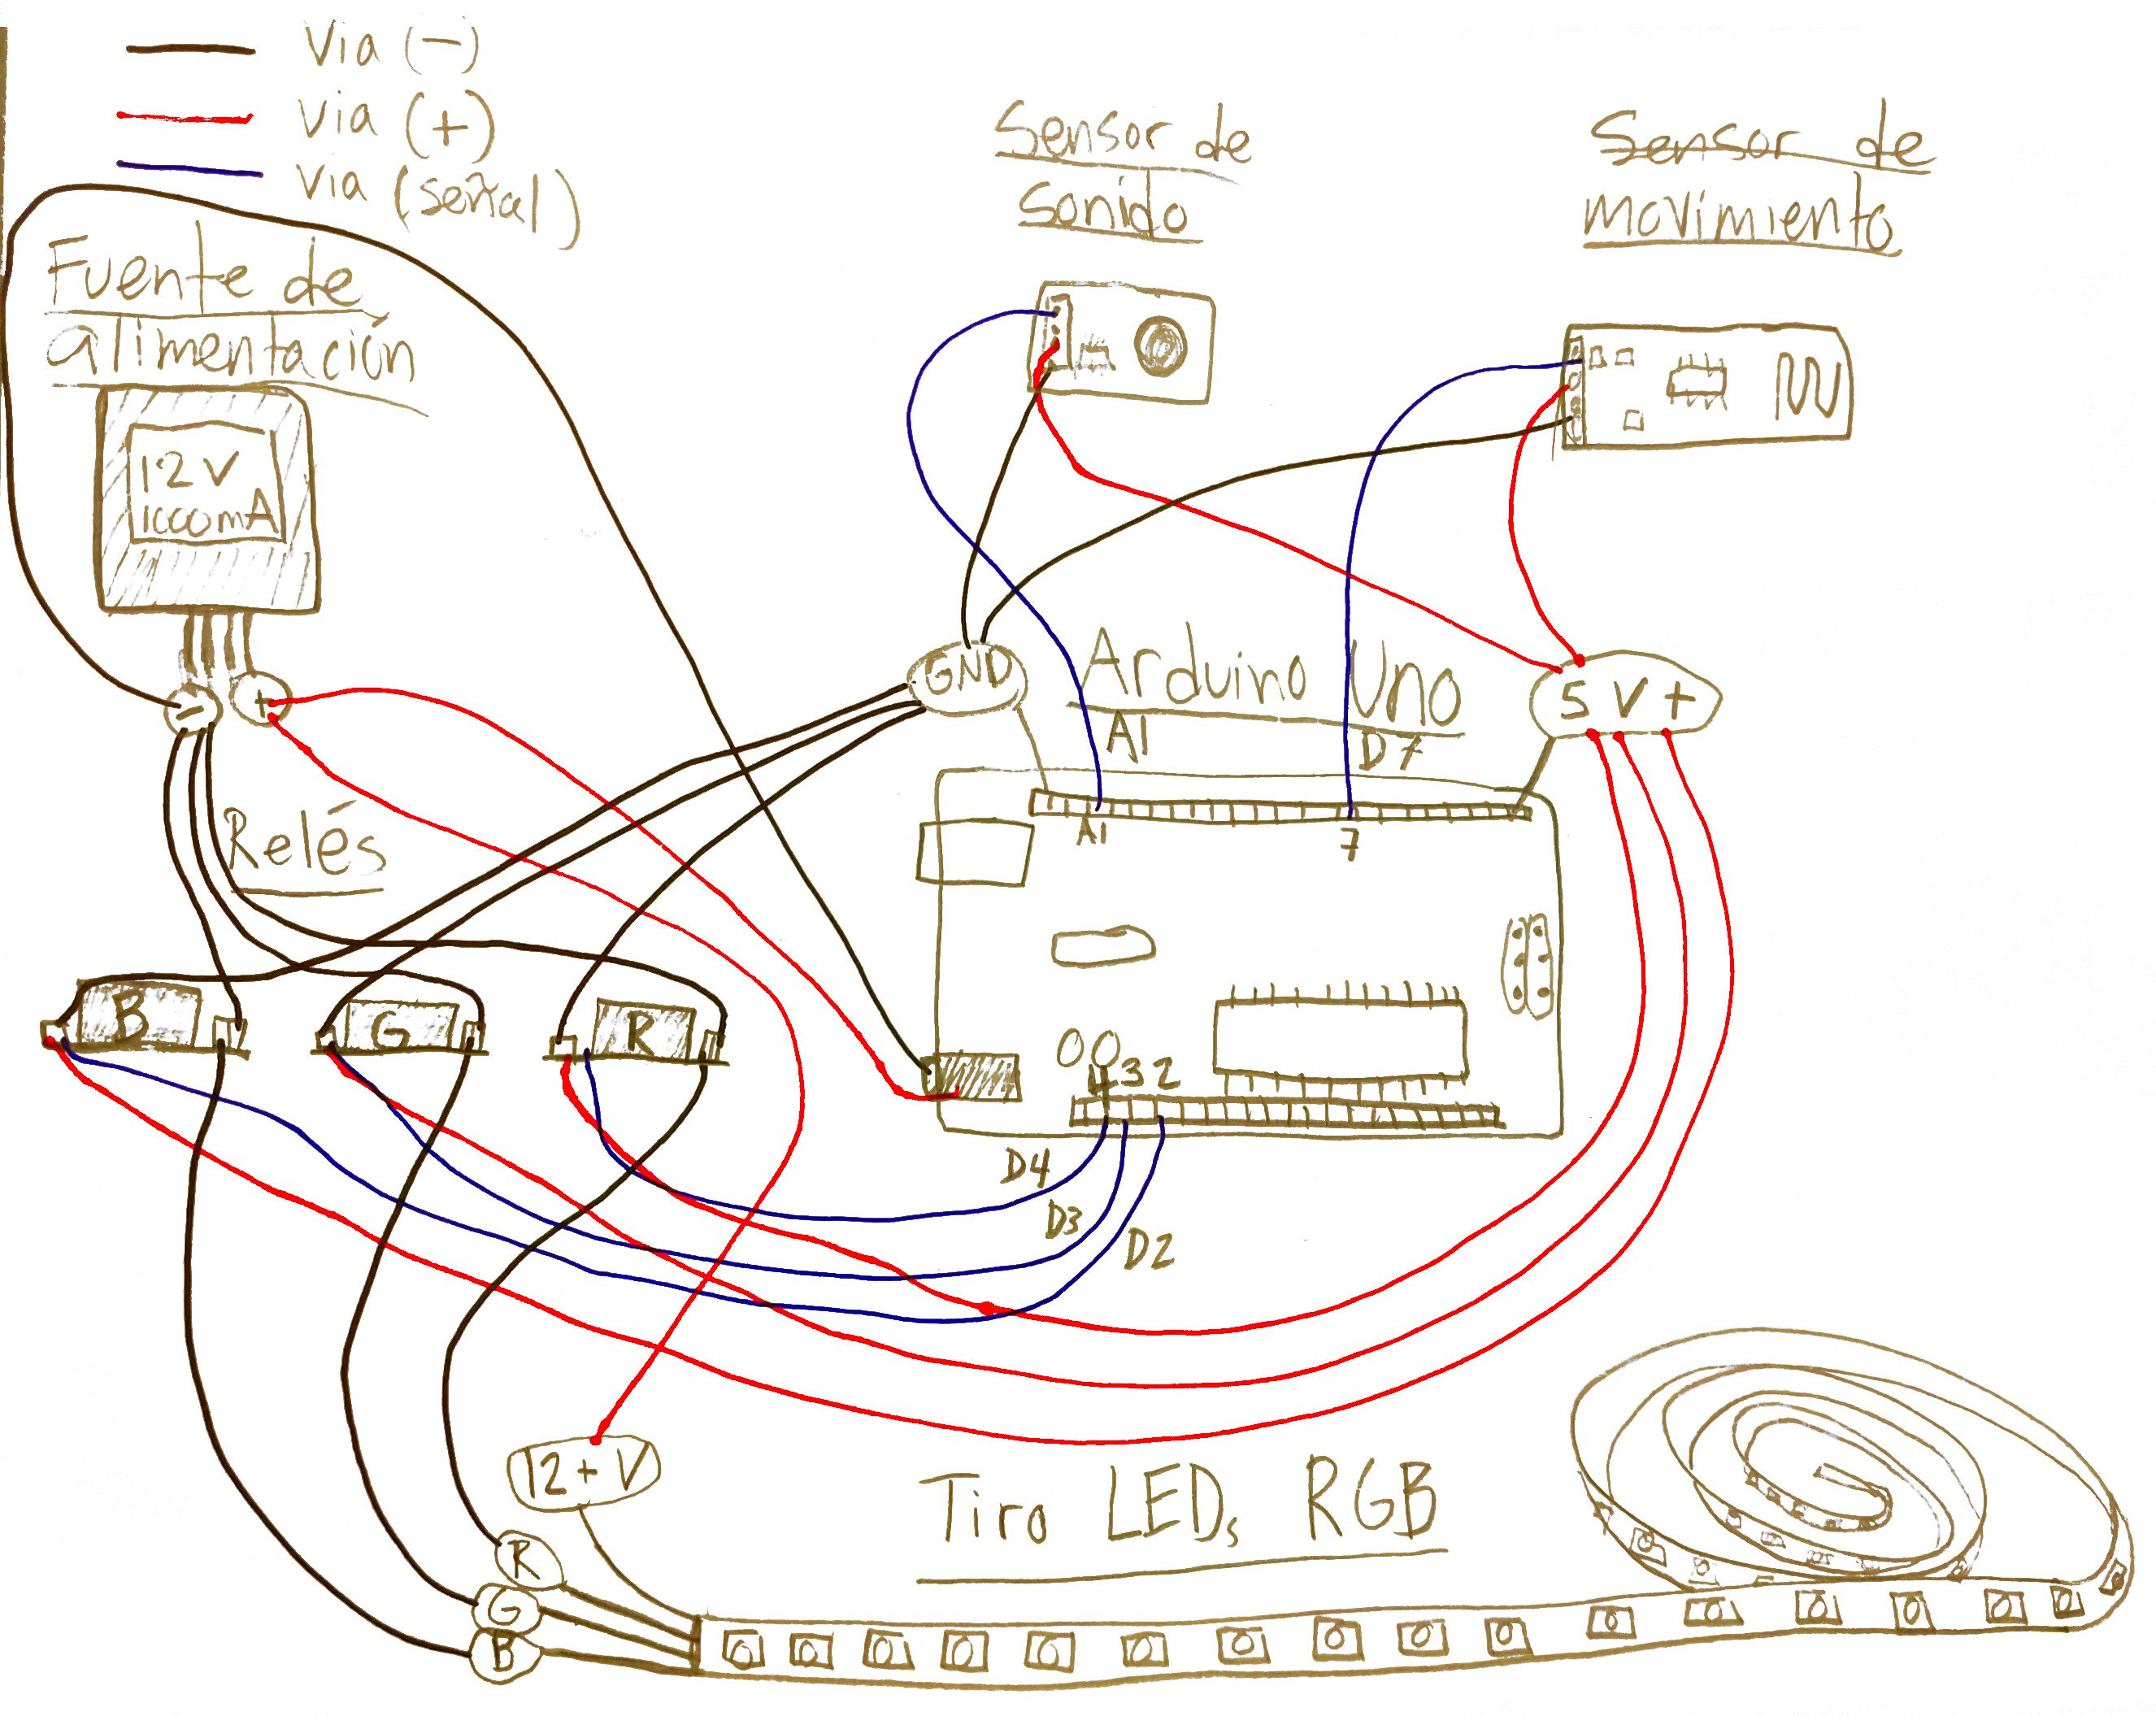 Via (-)
Via (+)
Via (señal)
Sensor de
sonido
Sensor de
movimiento
Fuente de
alimentación
12V
1000mA
-
+
GND
Arduino Uno
5 V +
A1
D7
A1
7
Relés
B
G
R
4 3 2
D4
D3
D2
12+V
Tira LEDs RGB
R
G
B